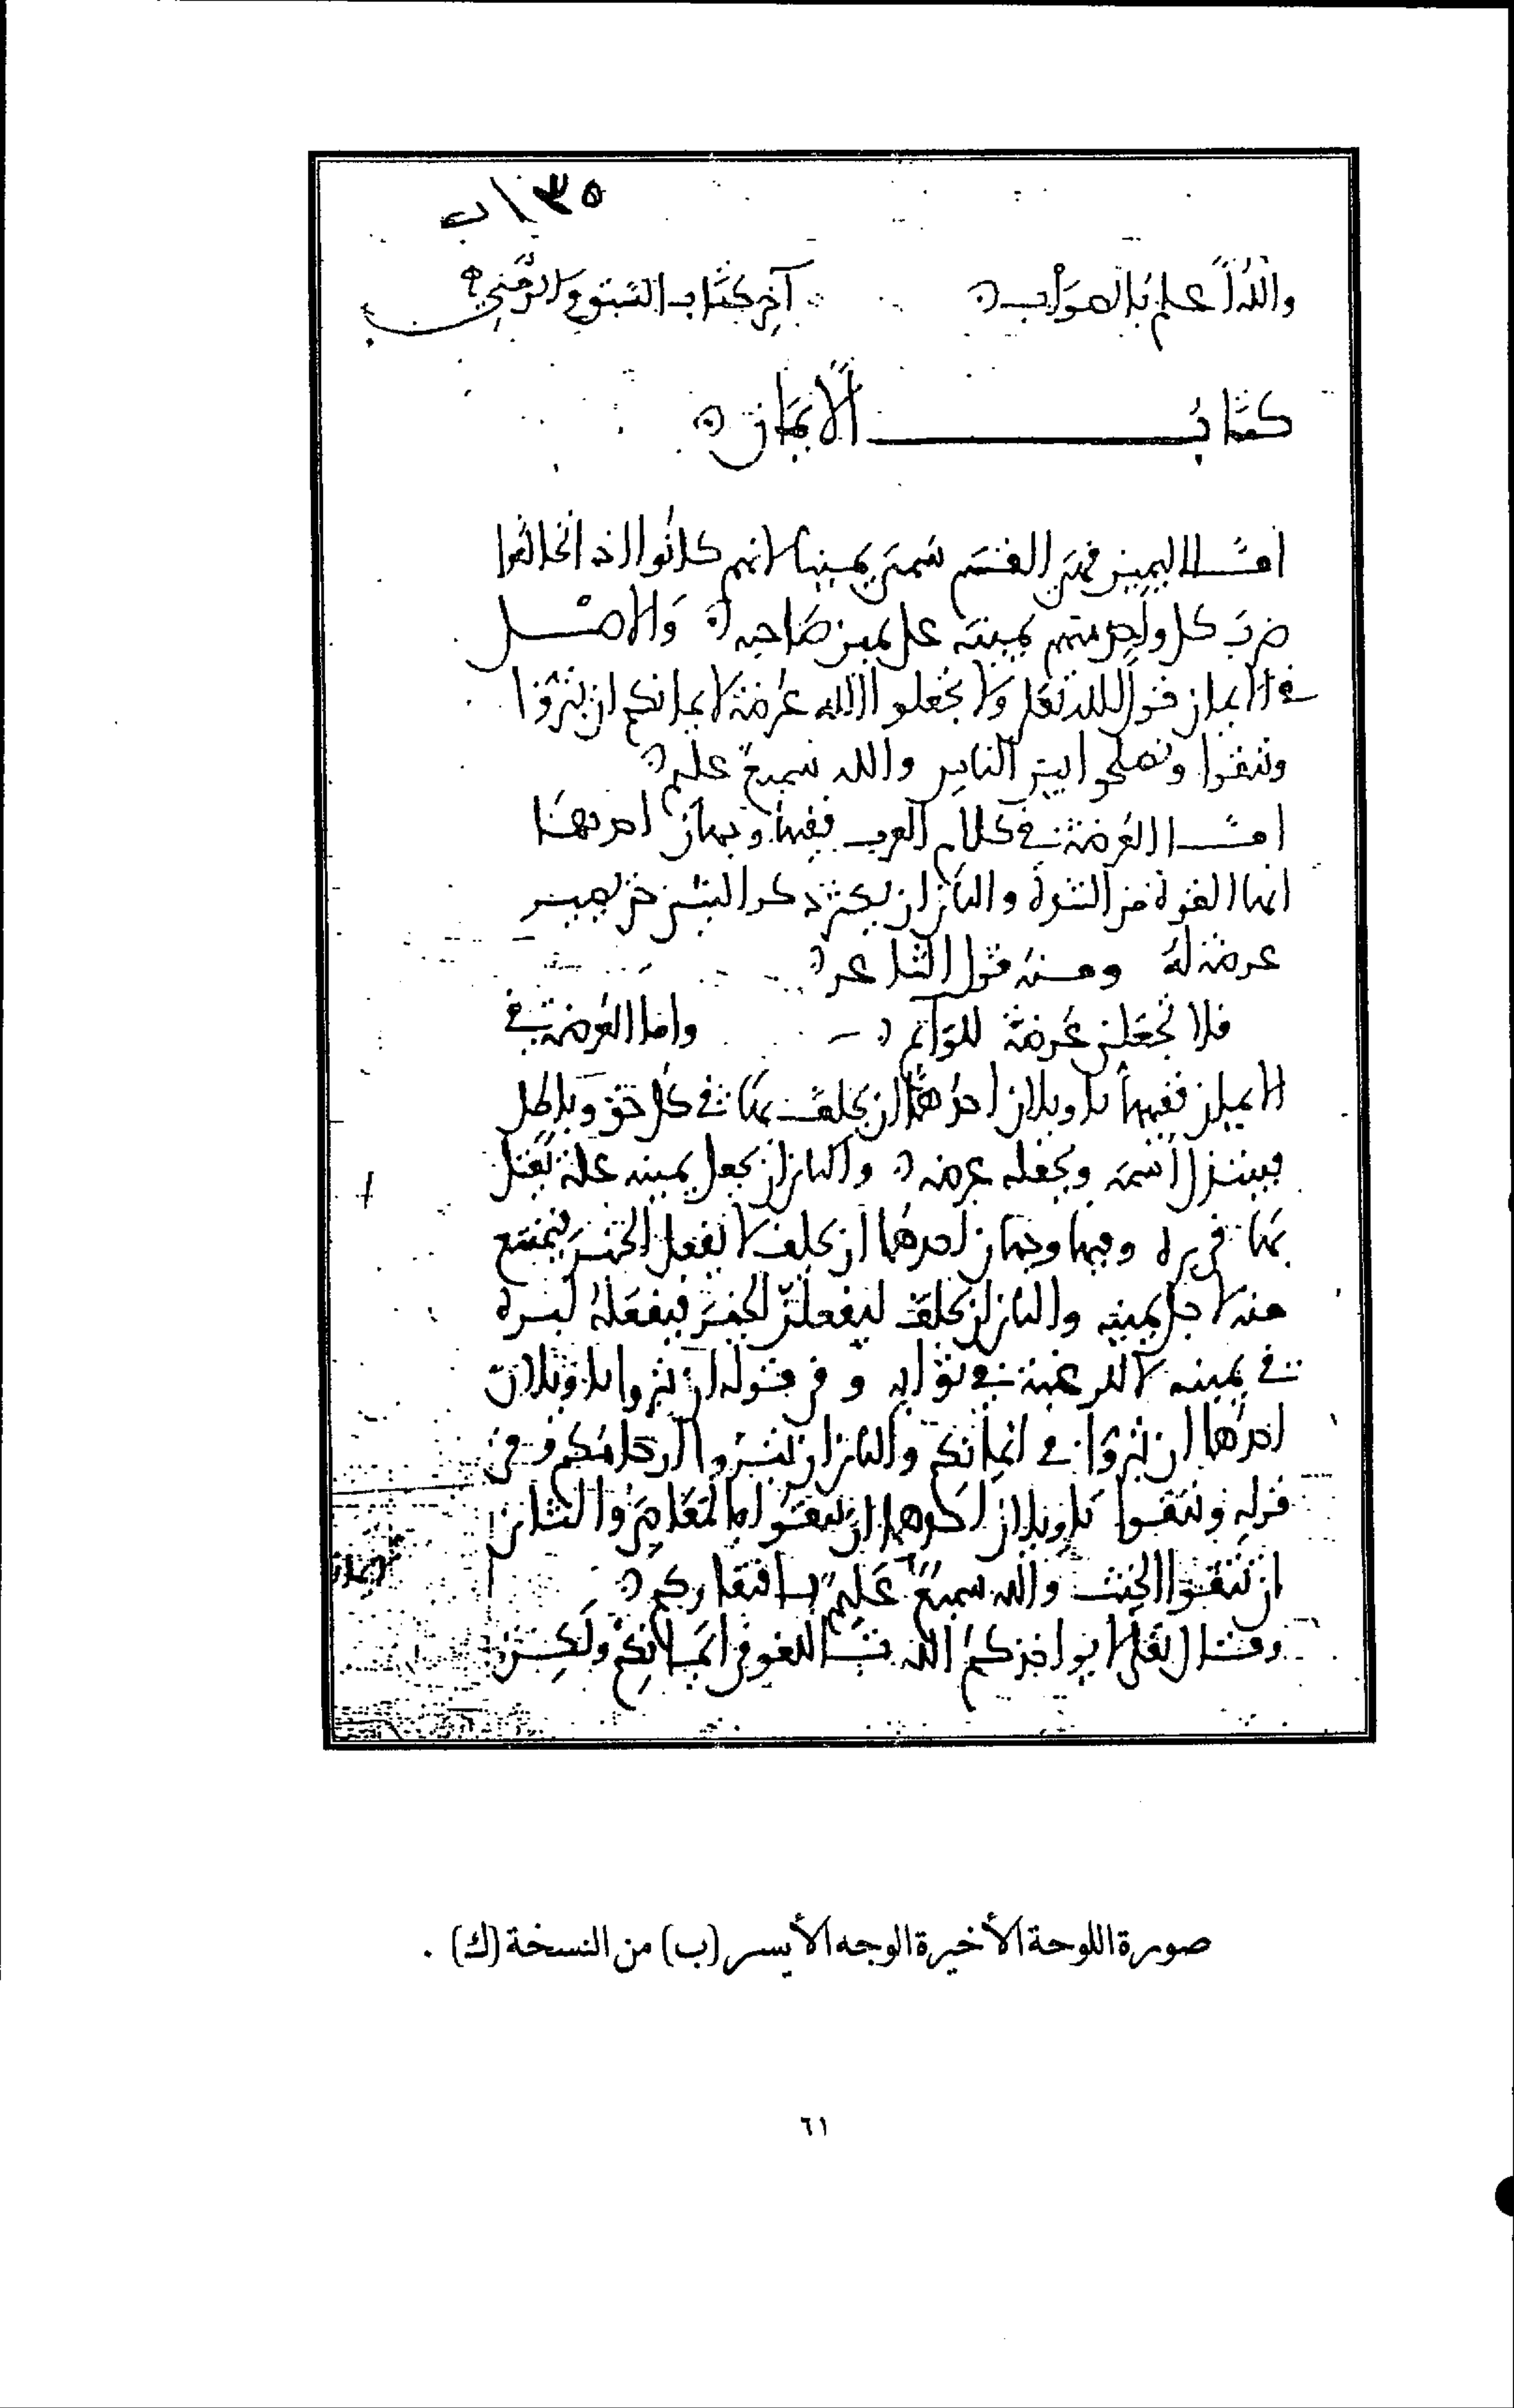 ٣٥ \ ب
والله أعلم بالصواب آخر كتاب السبق والرمي
كتاب الأيمان
اما اليمين فهي القسم سمي يمينا لانهم كانوا اذا تحالفوا
ضرب كل واحد منهم يمينه على يمين صاحبه والاصل
في الايمان قول الله تعلى ولا تجعلوا الله عرضة لايمانكم ان تبروا
وتتقوا وتصلحوا بين الناس والله سميع عليم
اما العرضة في كلام العرب ففيها وجهان احدهما
انها القوة من الشدة والثاني ان يكثر ذكر الشيء حتى يصير
عرضة له ومنه قول الشاعر
فلا تجعلني عرضة للوائم واما العرضة في
الايمان ففيها تاويلان احدهما ان يحلف بها في كل حق وباطل
فيبتذل اسمه ويجعله عرضة والثاني ان يجعل يمينه علة يعتل
بها في بره وفيها وجهان احدهما ان يحلف لا يفعل الخير فيمتنع
منه لاجل يمينه والثاني ان يحلف ليفعلن الخير فيفعله لبره
في يمينه لا للرغبة في ثوابه وفي قوله ان تبروا تاويلان
احدهما ان تبروا في ايمانكم والثاني ان تبروا ارحامكم وفي
قوله وتتقوا تاويلان احدهما ان تتقوا المعاصي والثاني
ان تتقوا الحنث والله سميع عليم
وقال تعلى لا يواخذكم الله باللغو في ايمانكم ولكن
صورة اللوحة الأخيرة الوجه الأيسر (ب) من النسخة (ك) .
٦١